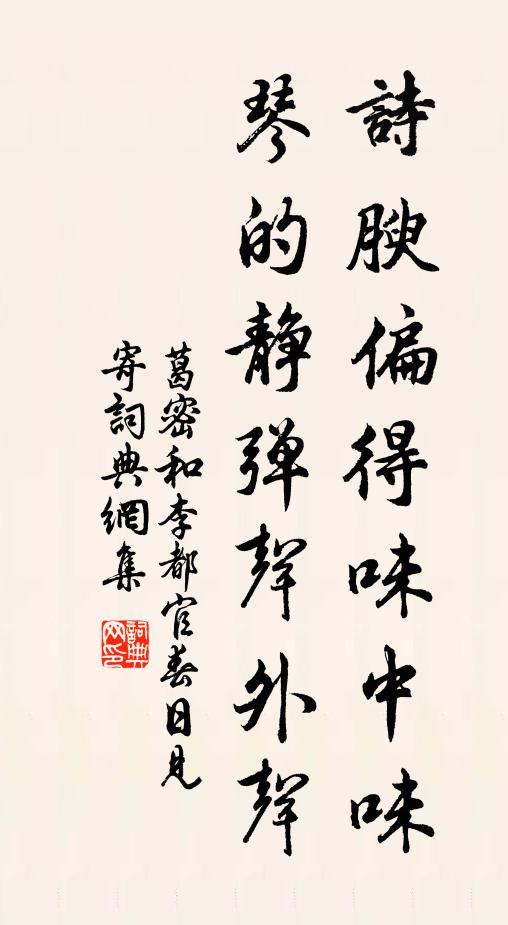 詩腴偏得味中味
琴的静弹聲外聲
葛密和李都官春日見
寄詞典網集
詞典網印